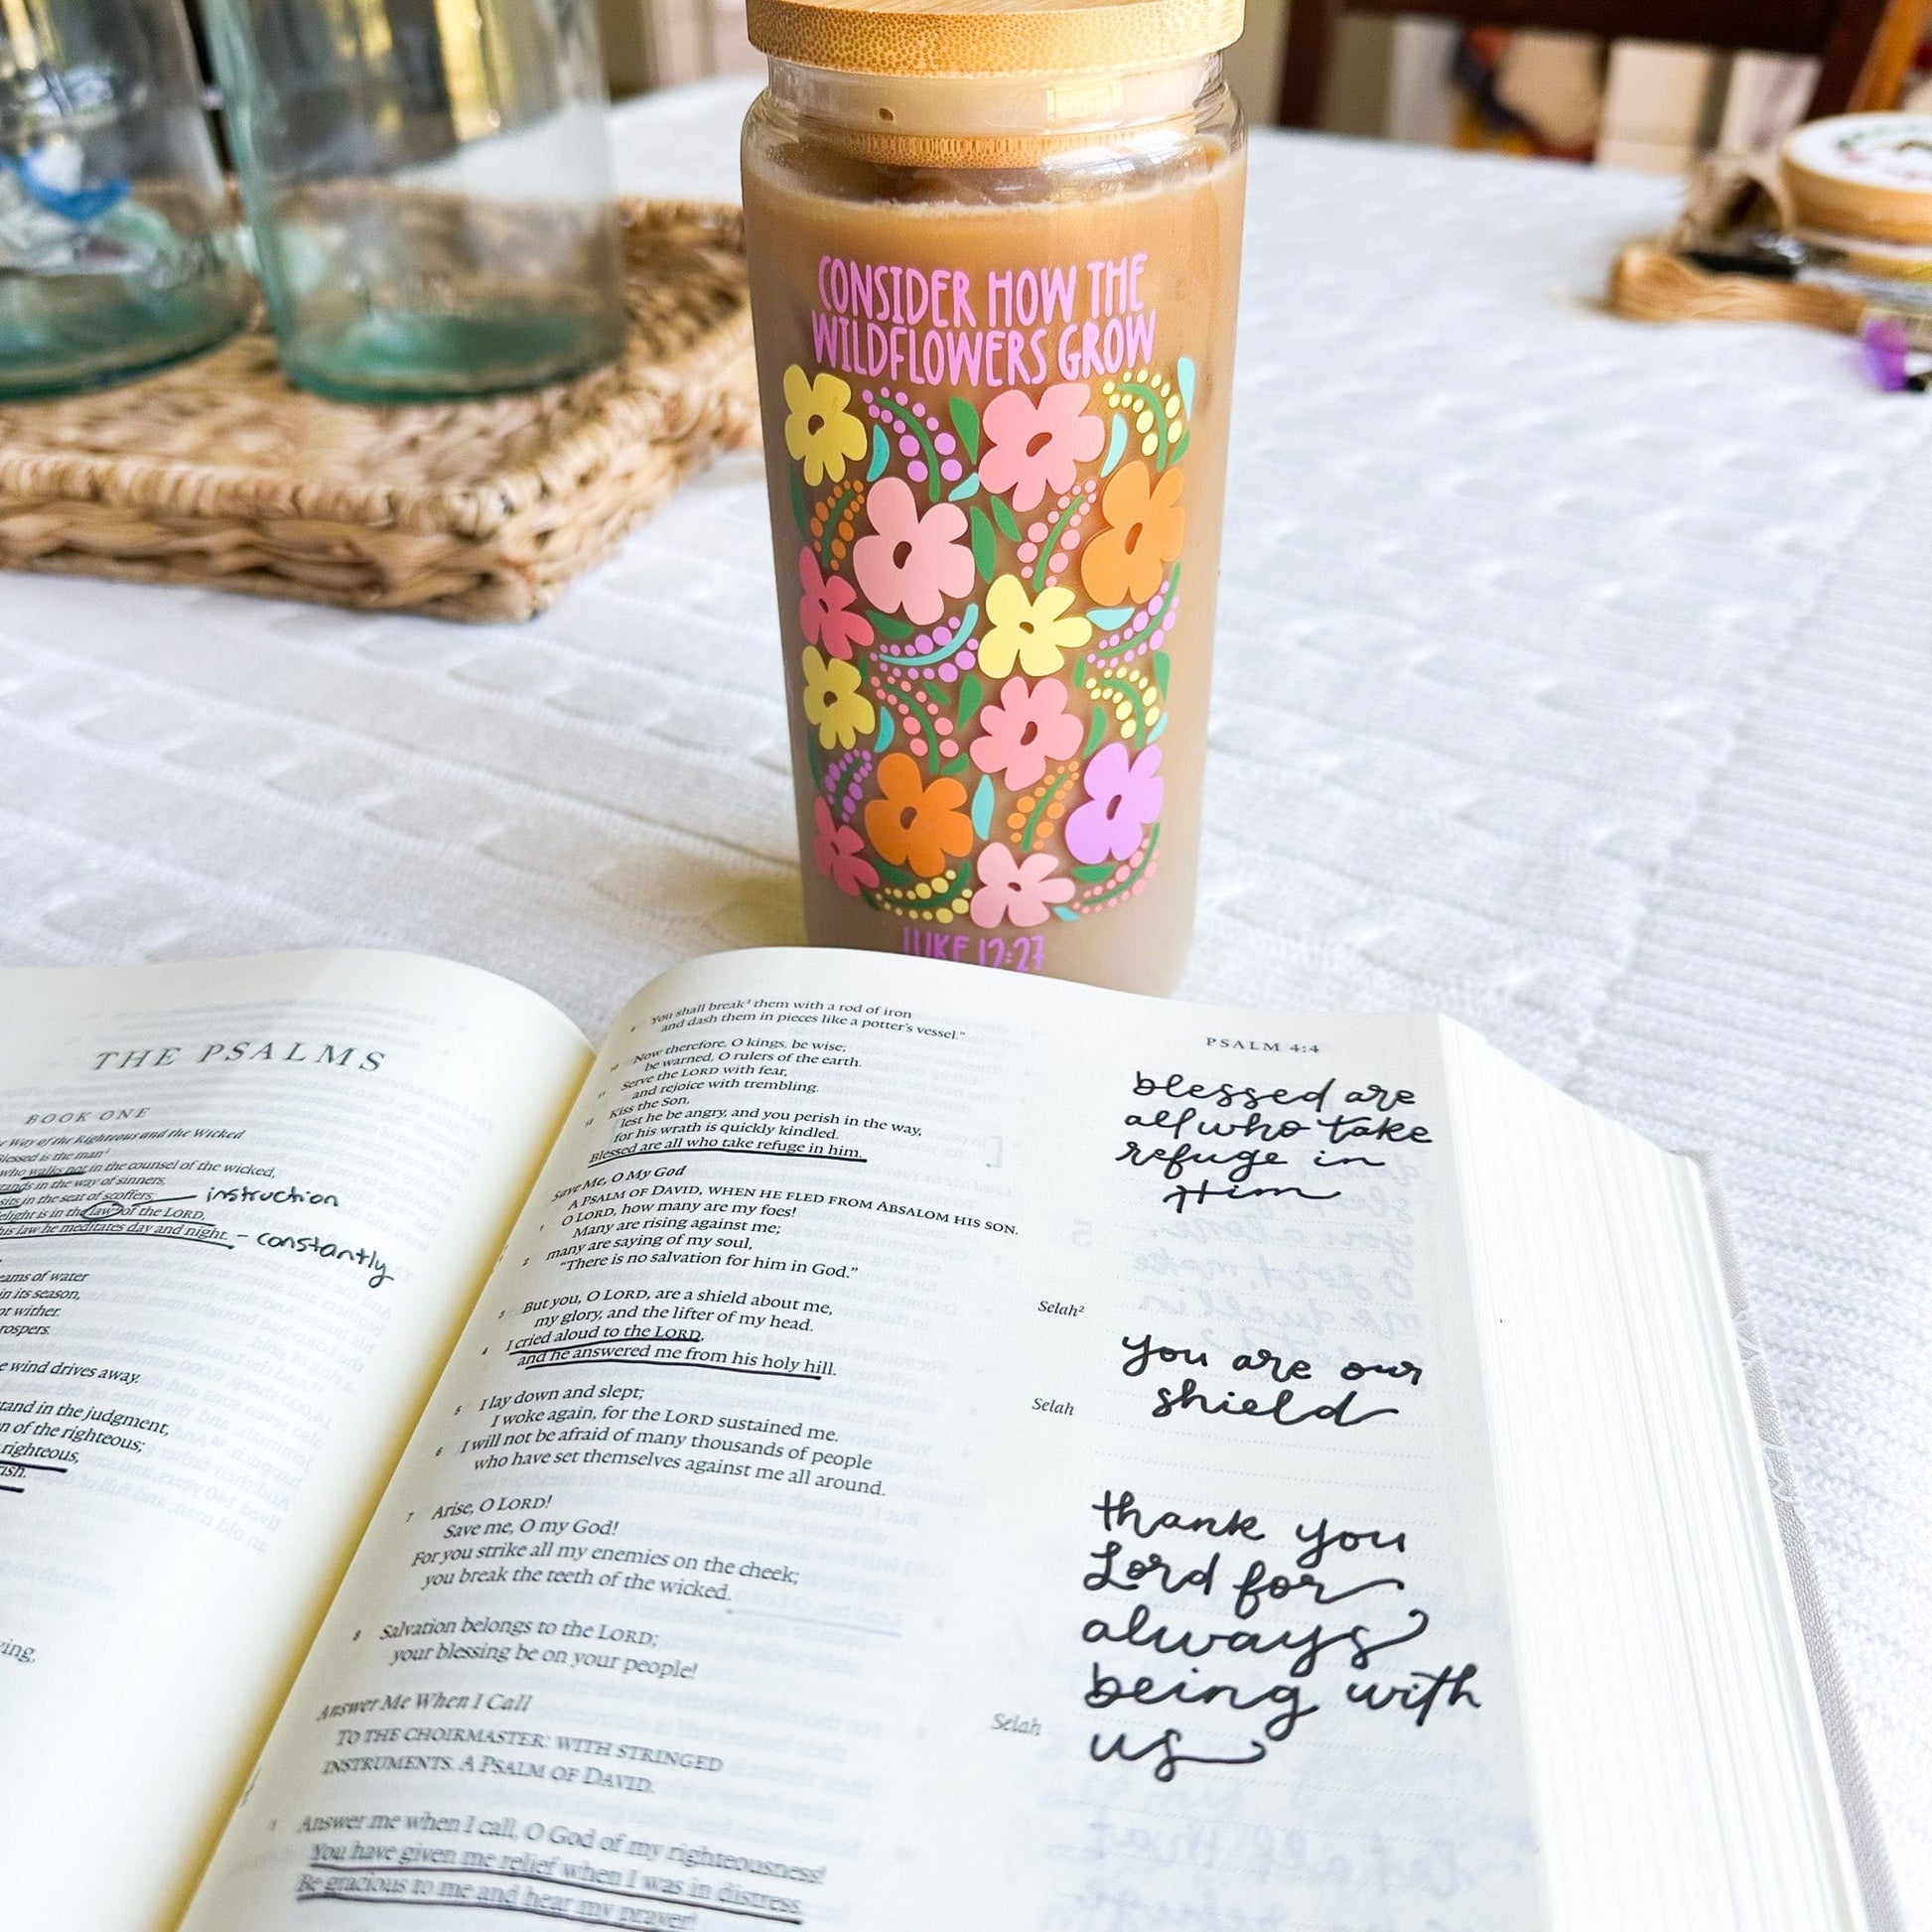 CONSIDER HOW THE
WILDFLOWERS GROW
LUKE 12:27
THE PSALMS
BOOK ONE
Way of the Righteous and the Wicked
Blessed is the man¹
who walks not in the counsel of the wicked,
stands in the way of sinners,
sits in the seat of scoffers;
instruction
delight is in the law² of the LORD,
his law he meditates day and night.
- constantly
streams of water
in its season,
not wither.
prospers.
wind drives away.
stand in the judgment,
of the righteous;
righteous,
9 You shall break³ them with a rod of iron
and dash them in pieces like a potter's vessel."
10 Now therefore, O kings, be wise;
be warned, O rulers of the earth.
11 Serve the LORD with fear,
and rejoice with trembling.
12 Kiss the Son,
lest he be angry, and you perish in the way,
for his wrath is quickly kindled.
Blessed are all who take refuge in him.
Save Me, O My God
A PSALM OF DAVID, WHEN HE FLED FROM ABSALOM HIS SON.
1 O LORD, how many are my foes!
Many are rising against me;
2 many are saying of my soul,
"There is no salvation for him in God."
Selah²
3 But you, O LORD, are a shield about me,
my glory, and the lifter of my head.
4 I cried aloud to the LORD,
and he answered me from his holy hill.
Selah
5 I lay down and slept;
I woke again, for the LORD sustained me.
6 I will not be afraid of many thousands of people
who have set themselves against me all around.
7 Arise, O LORD!
Save me, O my God!
For you strike all my enemies on the cheek;
you break the teeth of the wicked.
8 Salvation belongs to the LORD;
your blessing be on your people!
Selah
Answer Me When I Call
TO THE CHOIRMASTER: WITH STRINGED
INSTRUMENTS. A PSALM OF DAVID.
1 Answer me when I call, O God of my righteousness!
You have given me relief when I was in distress.
Be gracious to me and hear my prayer!
PSALM 4:4
blessed are
all who take
refuge in
Him
you are our
shield
thank you
Lord for
always
being with
us